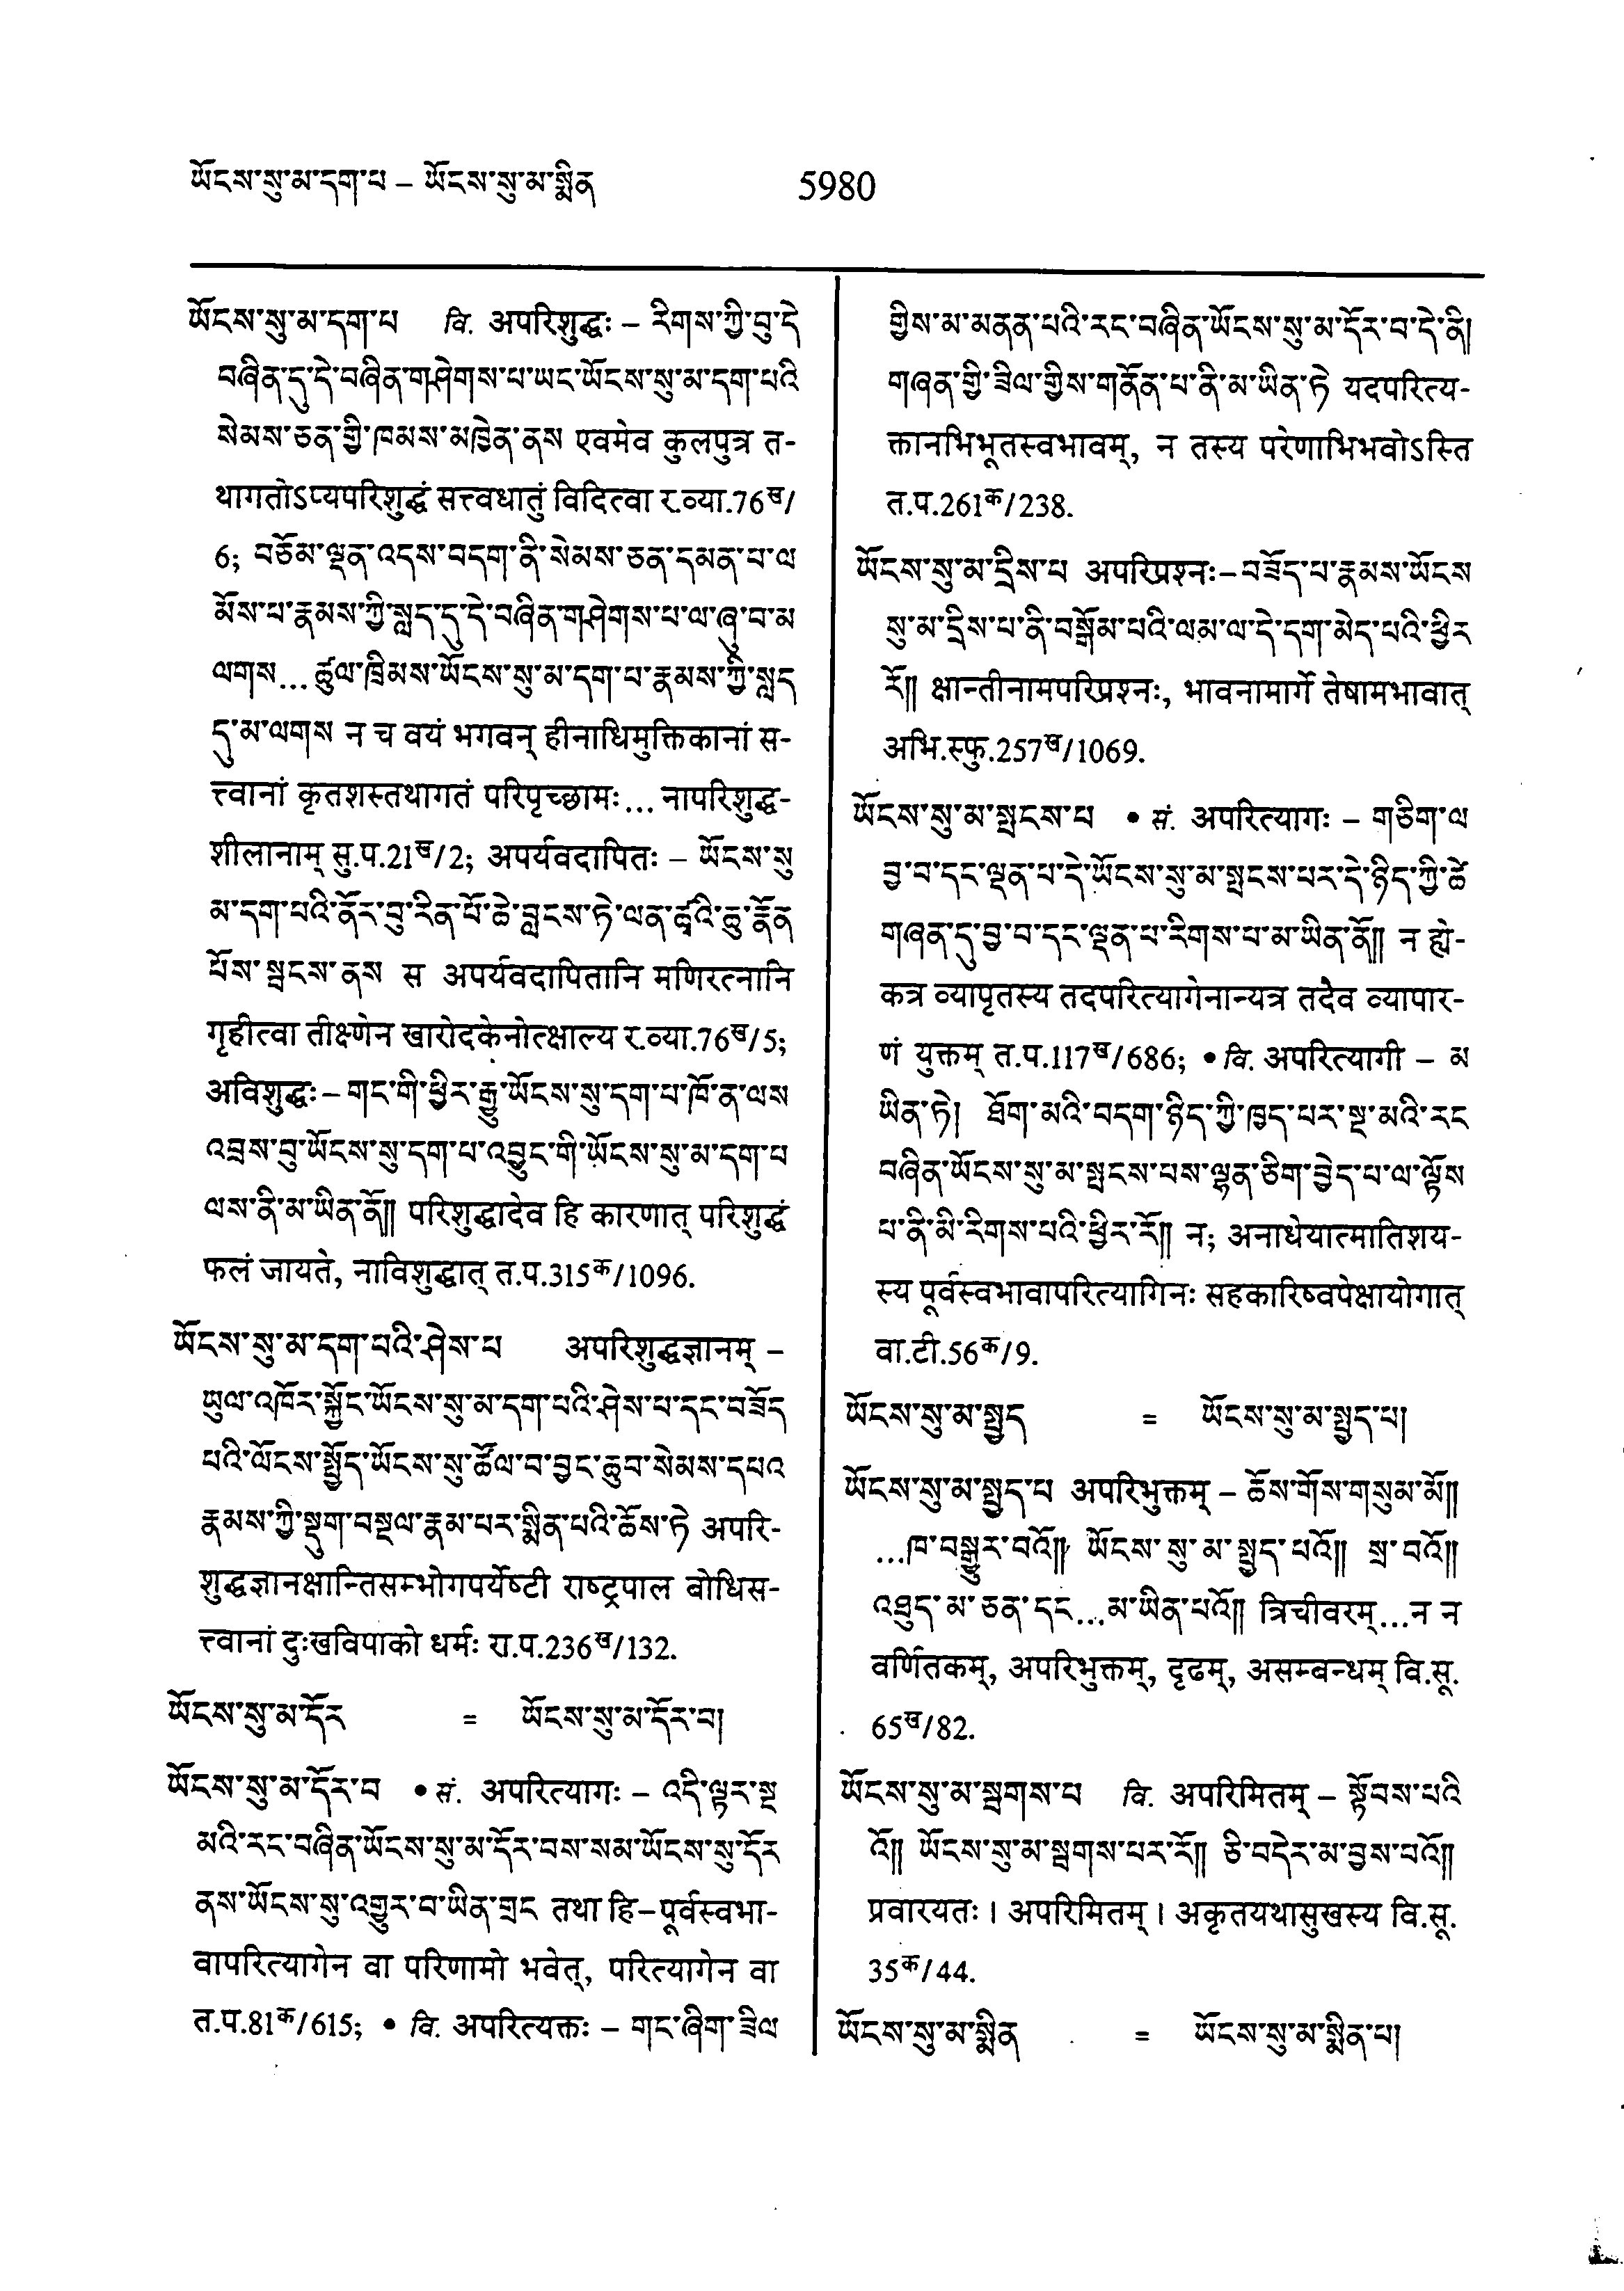 ཡོངས་སུ་མ་དག་པ – ཡོངས་སུ་མ་སྨིན
5980
ཡོངས་སུ་མ་དག་པ वि. अपरिशुद्धः – རིགས་ཀྱི་བུ་དེ
བཞིན་དུ་དེ་བཞིན་གཤེགས་པ་ཡང་ཡོངས་སུ་མ་དག་པའི
སེམས་ཅན་གྱི་ཁམས་མཁྱེན་ནས एवमेव कुलपुत्र त-
थागतोऽप्यपरिशुद्धं सत्त्वधातुं विदित्वा र.व्या.76ख/
6; བཅོམ་ལྡན་འདས་བདག་ནི་སེམས་ཅན་དམན་པ་ལ
མོས་པ་རྣམས་ཀྱི་སླད་དུ་དེ་བཞིན་གཤེགས་པ་ལ་ཞུ་བ་མ
ལགས... ཚུལ་ཁྲིམས་ཡོངས་སུ་མ་དག་པ་རྣམས་ཀྱི་སླད
དུ་མ་ལགས न च वयं भगवन् हीनाधिमुक्तिकानां स-
त्त्वानां कृतशस्तथागतं परिपृच्छामः... नापरिशुद्ध-
शीलानाम् सु.प.21ख/2; अपर्यवदापितः – ཡོངས་སུ
མ་དག་པའི་ནོར་བུ་རིན་པོ་ཆེ་བླངས་ཏེ་ལན་ཚྭའི་ཆུ་རྣོན
པོས་སྦངས་ནས स अपर्यवदापितानि मणिरत्नानि
गृहीत्वा तीक्ष्णेन खारोदकेनोत्क्षाल्य र.व्या.76ख/5;
अविशुद्धः – གང་གི་ཕྱིར་རྒྱུ་ཡོངས་སུ་དག་པ་ཁོ་ན་ལས
འབྲས་བུ་ཡོངས་སུ་དག་པ་འབྱུང་གི་ཡོངས་སུ་མ་དག་པ
ལས་ནི་མ་ཡིན་ནོ༎ परिशुद्धादेव हि कारणात् परिशुद्धं
फलं जायते, नाविशुद्धात् त.प.315क/1096.
ཡོངས་སུ་མ་དག་པའི་ཤེས་པ अपरिशुद्धज्ञानम् –
ཡུལ་འཁོར་སྐྱོང་ཡོངས་སུ་མ་དག་པའི་ཤེས་པ་དང་བཟོད
པའི་ལོངས་སྤྱོད་ཡོངས་སུ་ཚོལ་བ་བྱང་ཆུབ་སེམས་དཔའ
རྣམས་ཀྱི་སྡུག་བསྔལ་རྣམ་པར་སྨིན་པའི་ཆོས་ཏེ अपरि-
शुद्धज्ञानक्षान्तिसम्भोगपर्येष्टी राष्ट्रपाल बोधिस-
त्त्वानां दुःखविपाको धर्मः रा.प.236ख/132.
ཡོངས་སུ་མ་དོར = ཡོངས་སུ་མ་དོར་བ།
ཡོངས་སུ་མ་དོར་བ • सं. अपरित्यागः – འདི་ལྟར་སྔ
མའི་རང་བཞིན་ཡོངས་སུ་མ་དོར་བས་སམ་ཡོངས་སུ་དོར
ནས་ཡོངས་སུ་འགྱུར་བ་ཡིན་གྲང तथा हि–पूर्वस्वभा-
वापरित्यागेन वा परिणामो भवेत्, परित्यागेन वा
त.प.81क/615; • वि. अपरित्यक्तः – གང་ཞིག་ཟིལ
གྱིས་མ་མནན་པའི་རང་བཞིན་ཡོངས་སུ་མ་དོར་བ་དེ་ནི།
གཞན་གྱི་ཟིལ་གྱིས་གནོན་པ་ནི་མ་ཡིན་ཏེ यदपरित्य-
क्तानभिभूतस्वभावम्, न तस्य परेणाभिभवोऽस्ति
त.प.261क/238.
ཡོངས་སུ་མ་དྲིས་པ अपरिप्रश्नः – བཟོད་པ་རྣམས་ཡོངས
སུ་མ་དྲིས་པ་ནི་བསྒོམ་པའི་ལམ་ལ་དེ་དག་མེད་པའི་ཕྱིར
རོ༎ क्षान्तीनामपरिप्रश्नः, भावनामार्गे तेषामभावात्
अभि.स्फु.257ख/1069.
ཡོངས་སུ་མ་སྤངས་པ • सं. अपरित्यागः – གཅིག་ལ
བྱ་བ་དང་ལྡན་པ་དེ་ཡོངས་སུ་མ་སྤངས་པར་དེ་ཉིད་ཀྱི་ཚེ
གཞན་དུ་བྱ་བ་དང་ལྡན་པ་རིགས་པ་མ་ཡིན་ནོ༎ न ह्ये-
कत्र व्यापृतस्य तदपरित्यागेनान्यत्र तदैव व्यापार-
णं युक्तम् त.प.117ख/686; • वि. अपरित्यागी – མ
ཡིན་ཏེ། ཐོག་མའི་བདག་ཉིད་ཀྱི་ཁྱད་པར་སྔ་མའི་རང
བཞིན་ཡོངས་སུ་མ་སྤངས་པས་ལྷན་ཅིག་བྱེད་པ་ལ་ལྟོས
པ་ནི་མི་རིགས་པའི་ཕྱིར་རོ༎ न; अनाधेयात्मातिशय-
स्य पूर्वस्वभावापरित्यागिनः सहकारिष्वपेक्षायोगात्
वा.टी.56क/9.
ཡོངས་སུ་མ་སྤྱད = ཡོངས་སུ་མ་སྤྱད་པ།
ཡོངས་སུ་མ་སྤྱད་པ अपरिभुक्तम् – ཆོས་གོས་གསུམ་མོ༎
...ཁ་བསྒྱུར་བའོ༎ ཡོངས་སུ་མ་སྤྱད་པའོ༎ སྲ་བའོ༎
འཐུད་མ་ཅན་དང...མ་ཡིན་པའོ༎ त्रिचीवरम्...न न
वर्णितकम्, अपरिभुक्तम्, दृढम्, असम्बन्धम् वि.सू.
65ख/82.
ཡོངས་སུ་མ་སྦགས་པ वि. अपरिमितम् – སྟོབས་པའི
འོ༎ ཡོངས་སུ་མ་སྦགས་པར་རོ༎ ཅི་བདེར་མ་བྱས་པའོ༎
प्रवारयतः । अपरिमितम् । अकृतयथासुखस्य वि.सू.
35क/44.
ཡོངས་སུ་མ་སྨིན = ཡོངས་སུ་མ་སྨིན་པ།